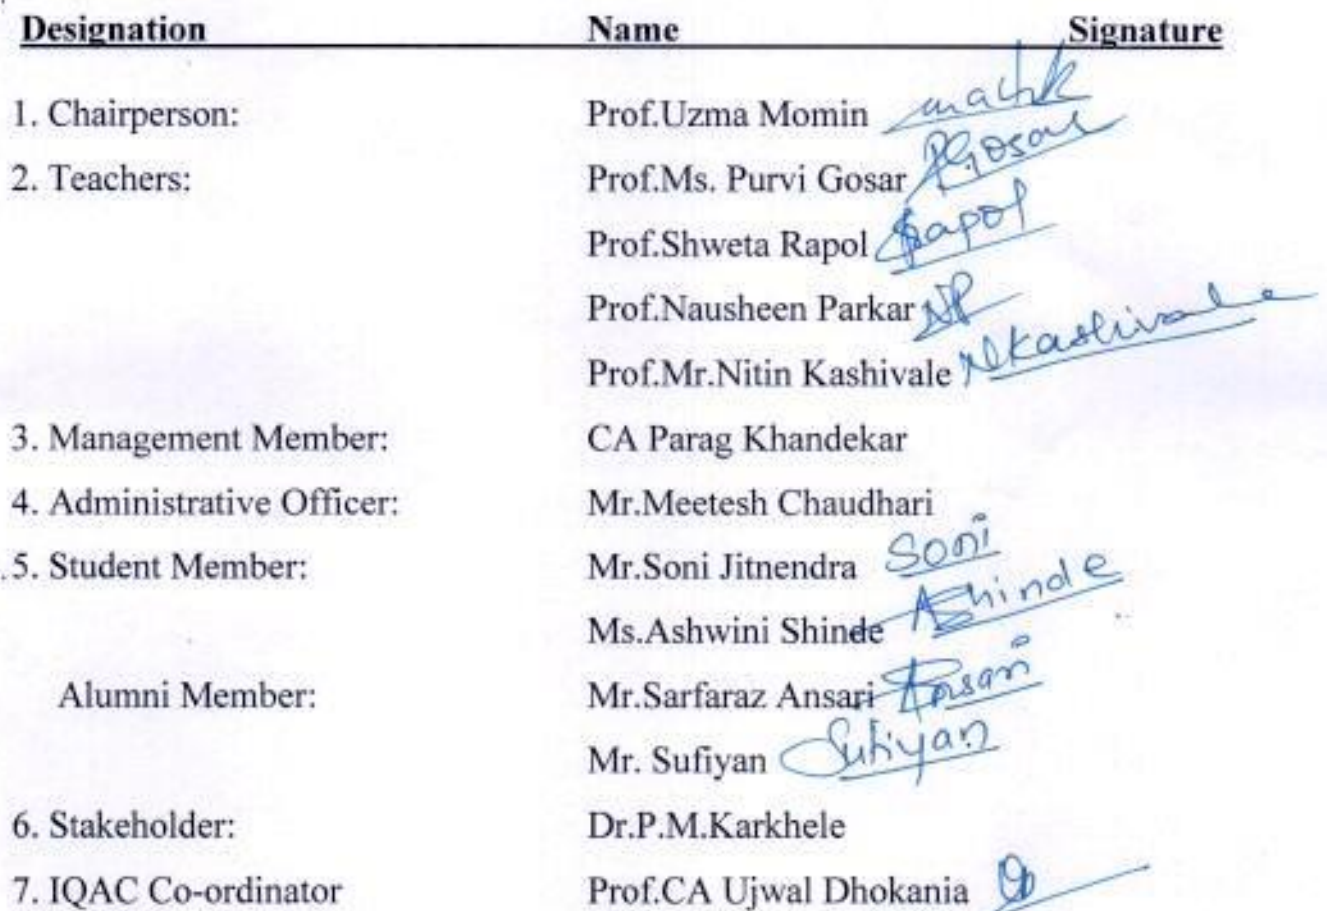 Designation Name Signature
1. Chairperson: Prof.Uzma Momin
2. Teachers: Prof.Ms. Purvi Gosar PGosar
Prof.Shweta Rapol SRapol
Prof.Nausheen Parkar NP
Prof.Mr.Nitin Kashivale NKashivale
3. Management Member: CA Parag Khandekar
4. Administrative Officer: Mr.Meetesh Chaudhari
5. Student Member: Mr.Soni Jitnendra Soni
Ms.Ashwini Shinde AShinde
Alumni Member: Mr.Sarfaraz Ansari Ansari
Mr. Sufiyan Sufiyan
6. Stakeholder: Dr.P.M.Karkhele
7. IQAC Co-ordinator Prof.CA Ujwal Dhokania